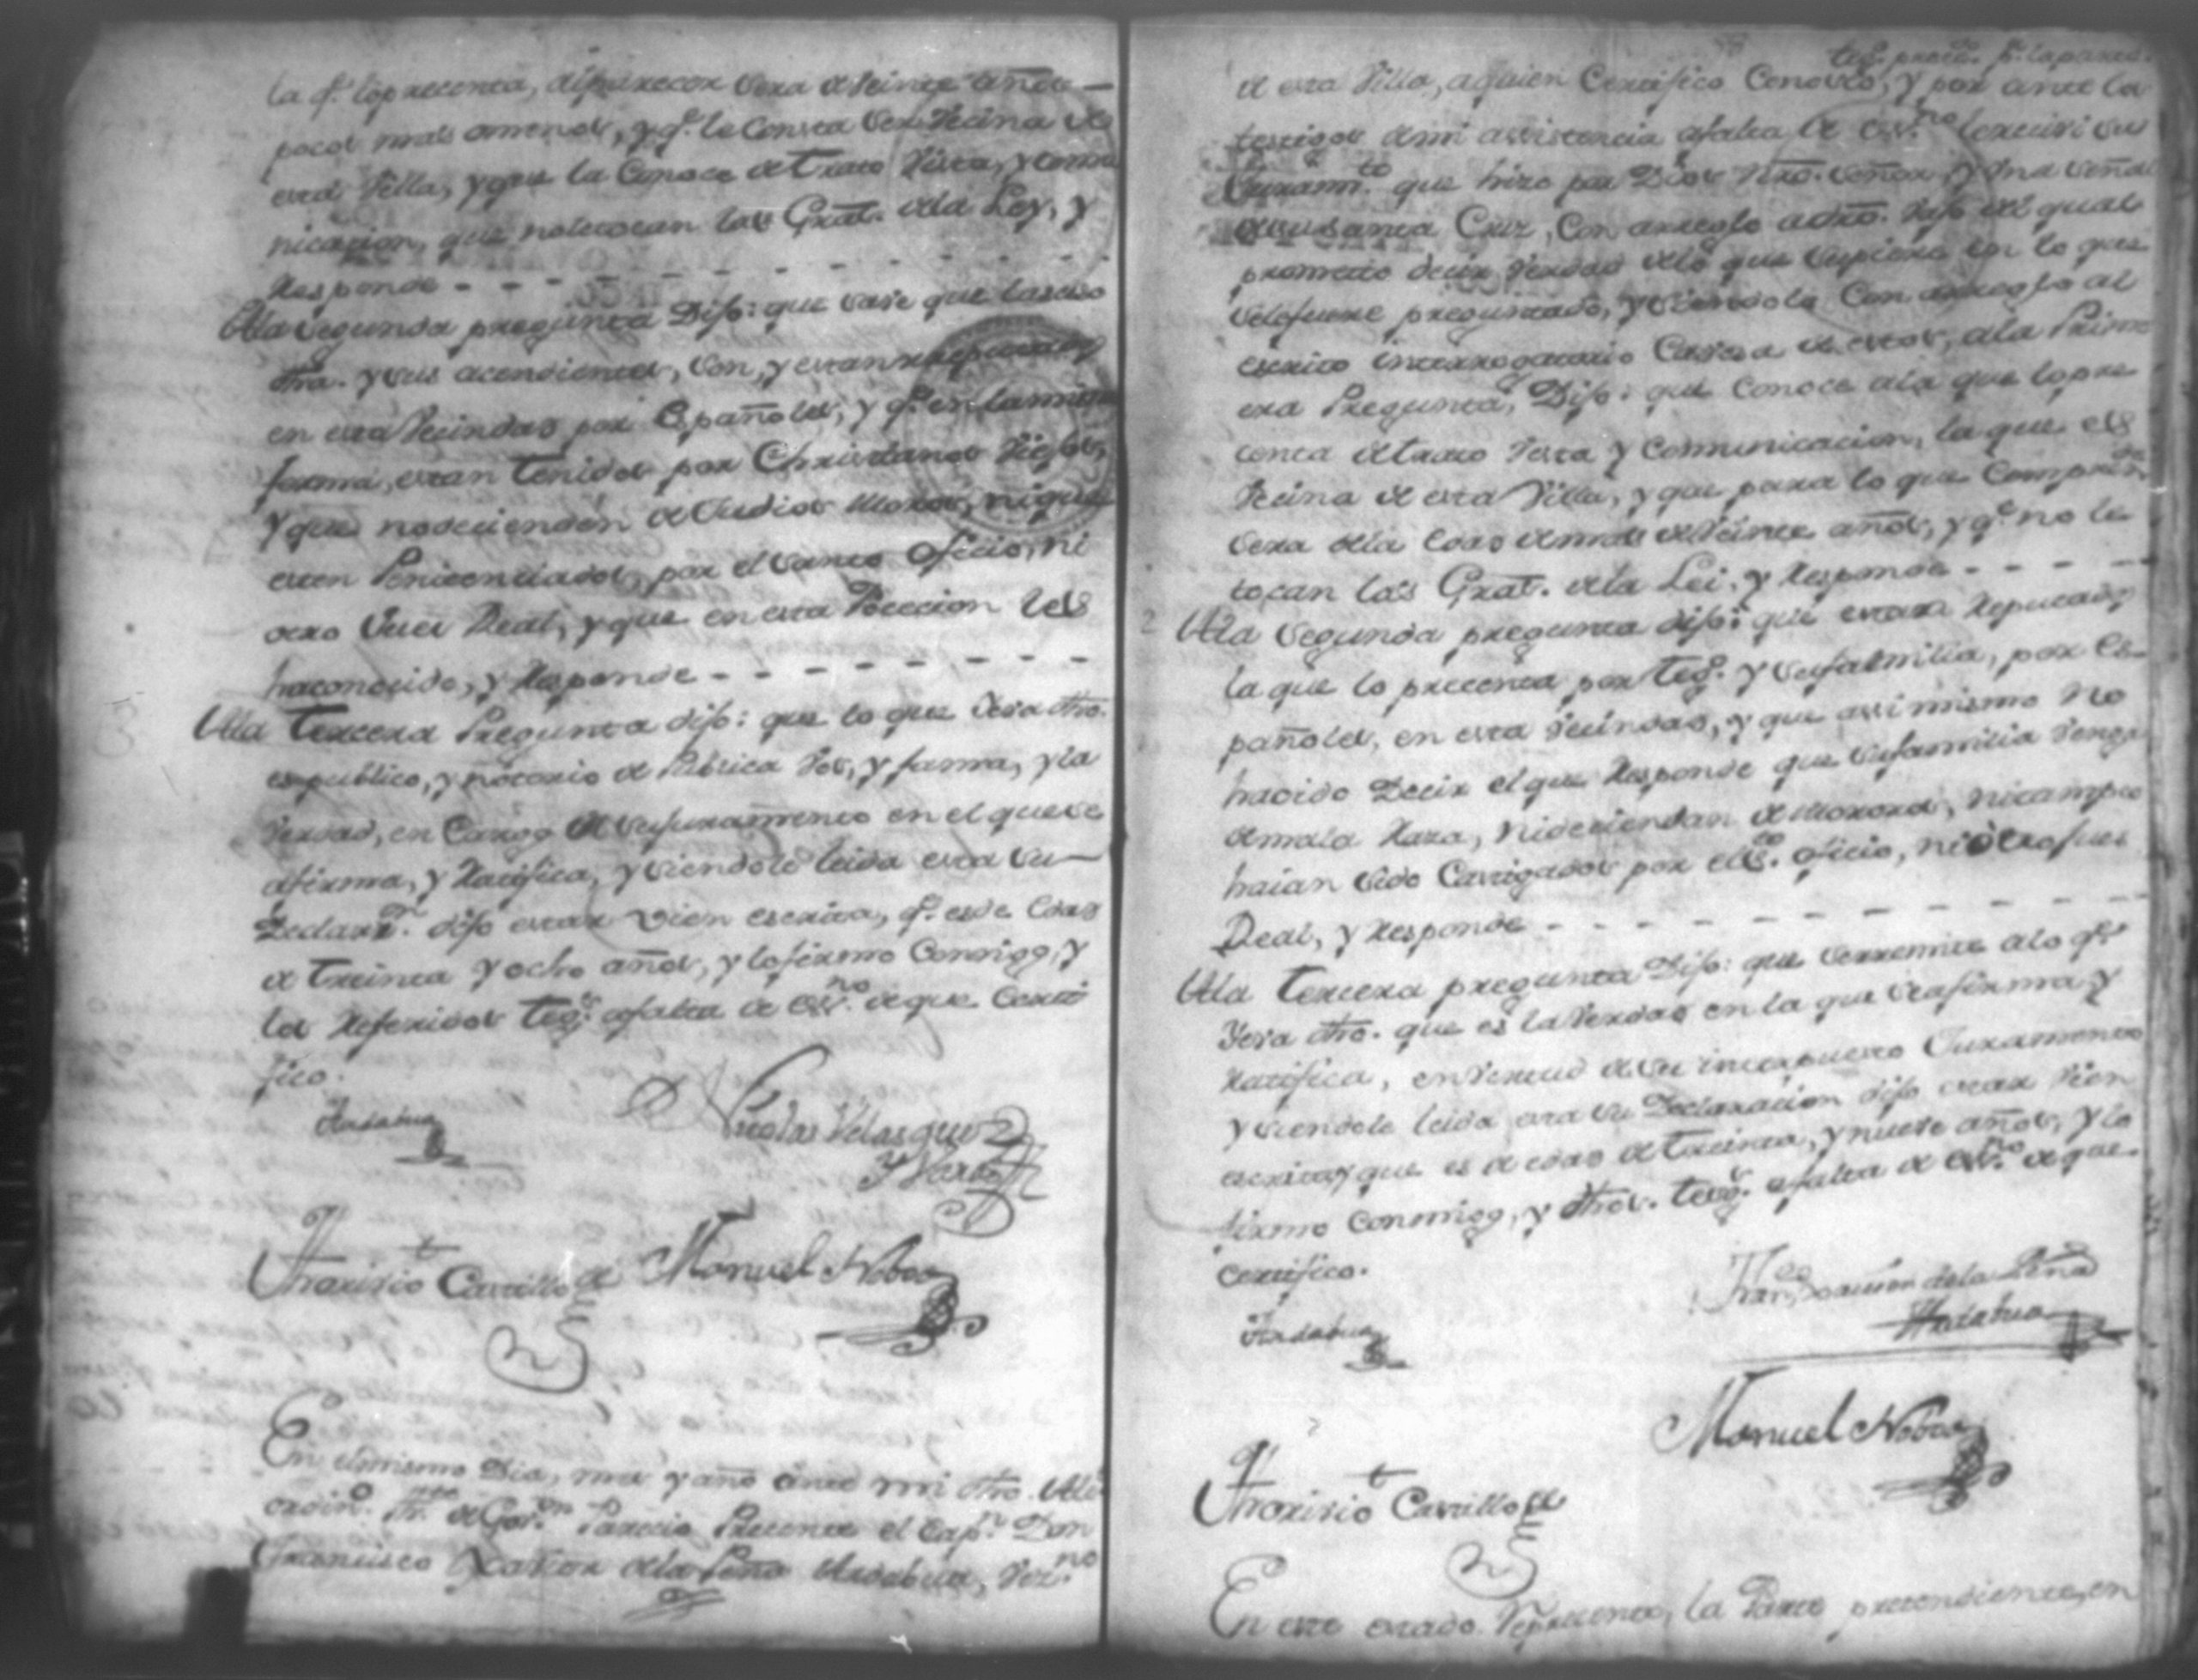 la q.e lo precenta, al parecer sera de veinte años
pocos mas amenos, y q.e le Consta ser Vecina de
esta Villa, y que la Conoce de trato Vista, y comu
nicacion, que no le tocan las Gral.s de la Ley, y
Responde
Ala Segunda pregunta Dijo: que save que la suso
dha. y sus acendientes, son, y estan reputados
en esta Vecindad por Españoles, y q.e en la misma
forma, estan tenidos por Christianos Viejos,
y que no decienden de Judios Moros, ni que
esten Penitenciados, por el Santo Oficio, ni
otro Juez Real, y que en esta Pocecion les
ha conocido, y Responde
Ala Tercera Pregunta dijo: que lo que lleva dho.
es publico, y notorio de Publica Voz, y fama, y la
Verdad, en Cargo de su juramento en el que se
afirma, y Ratifica, y siendole leida esta su
Declaraz.n dijo estar vien escrita, q.e es de edad
de treinta y ocho años, y lo firmo Conmigo, y
los Referidos teg.s afalta de es.no de que Certi
fico.
Andabua
Nicolas Velasquez
Y
Francisco Carrillo
Manuel
En el mismo Dia, mes y año ante mi dho. Alc.
ordin.o Th.te de Gov.on Parecio Precente el Cap.n Don
Francisco Xavier de la Peña Andabua, Vez.no
teg. p.r la parte
de esta Villa, aquien Certifico Conosco, y por ante los
testigos de mi assistencia afalta de es.no lerecivi su
Juram.to que hizo por Dios Nro. Señor y Una Señal
de su Santa Cruz, Con arreglo a dro. vajo del qual
prometio decir verdad de lo que supiere en lo que
se le fuere preguntado, y siendolo Con arreglo al
escrito interrogatorio Cavesa de estos, ala Prim
era Pregunta, Dijo: que Conoce ala que lo pre
centa de trato Vista y Comunicacion, la que es
Vecina de esta Villa, y que para lo que Comprende
sera de la edad de mas de Veinte años, y q.e no le
tocan las Gral.s de la Lei, y Responde
2 Ala Segunda pregunta dijo: que estar Reputado
la que lo precenta por teg.o y su familia, por Es
pañoles, en esta Vecindad, y que assi mismo No
ha oido Decir el que Responde que su familia Venga
de mala Raza, ni deciendan de Moros, ni tampoco
haian sido Castigados por el S.to oficio, ni otro Juez
Real, y Responde
Ala Tercera pregunta Dijo: que se remite alo q.e
lleva dho. que es la Verdad en la que se afirma, y
Ratifica, en Virtud de su interpuesto Juramento
y siendole leida esta su Declaracion dijo estar Vien
escrita y que es de edad de treinta, y nueve años, y lo
firmo Conmigo, y dhos. teg.s afalta de es.no de que
Certifico.
Andabua
Fran.co Xavier de la Peña
Andabua
Manuel
Francisco Carrillo
En este estado Represento, la Parte pretendiente, en